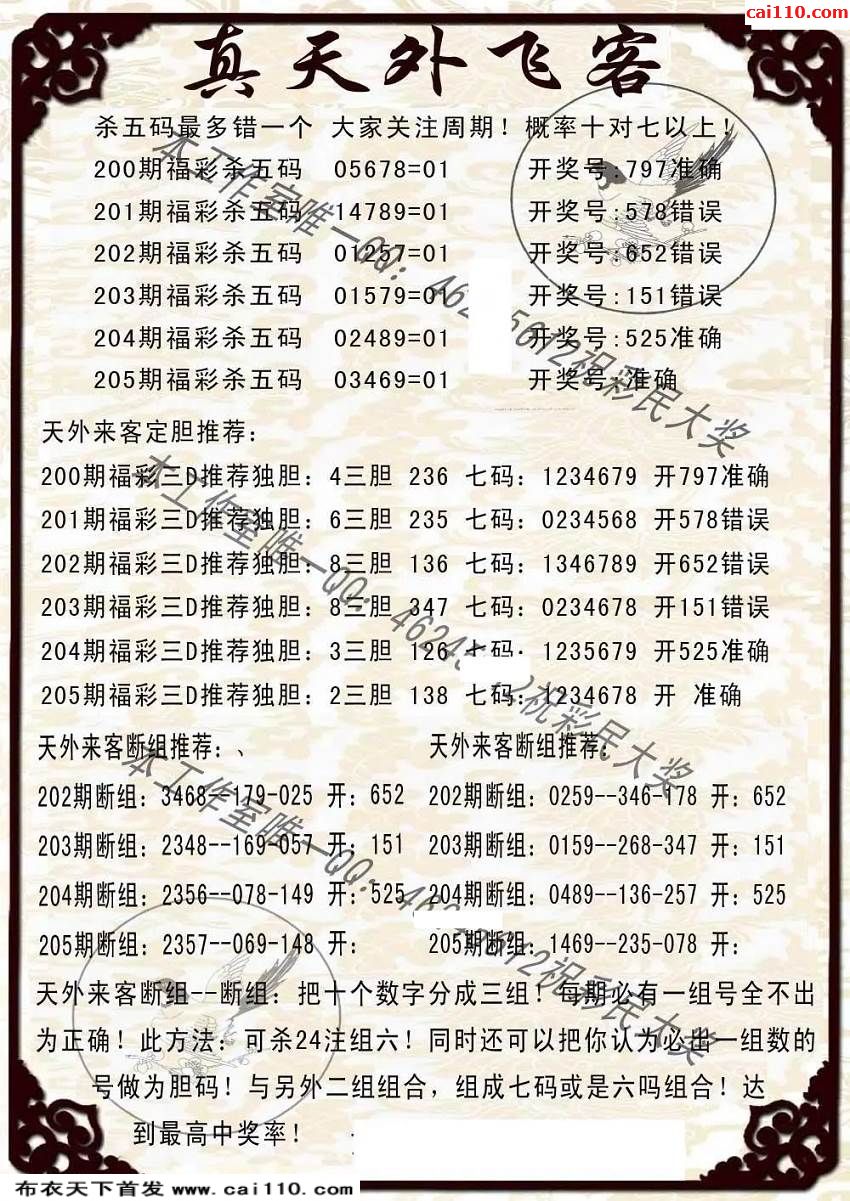 cai110.com
真天外飞客
杀五码最多错一个 大家关注周期！概率十对七以上！
200期福彩杀五码 05678=01 开奖号:797准确
201期福彩杀五码 14789=01 开奖号:578错误
202期福彩杀五码 01257=01 开奖号:652错误
203期福彩杀五码 01579=01 开奖号:151错误
204期福彩杀五码 02489=01 开奖号:525准确
205期福彩杀五码 03469=01 开奖号:准确
天外来客定胆推荐：
200期福彩三D推荐独胆：4三胆 236 七码：1234679 开797准确
201期福彩三D推荐独胆：6三胆 235 七码：0234568 开578错误
202期福彩三D推荐独胆：8三胆 136 七码：1346789 开652错误
203期福彩三D推荐独胆：8三胆 347 七码：0234678 开151错误
204期福彩三D推荐独胆：3三胆 126 七码：1235679 开525准确
205期福彩三D推荐独胆：2三胆 138 七码：1234678 开 准确
天外来客断组推荐：、 天外来客断组推荐：
202期断组：3468--179-025 开：652 202期断组：0259--346-178 开：652
203期断组：2348--169-057 开：151 203期断组：0159--268-347 开：151
204期断组：2356--078-149 开：525 204期断组：0489--136-257 开：525
205期断组：2357--069-148 开： 205期断组：1469--235-078 开：
天外来客断组--断组：把十个数字分成三组！每期必有一组号全不出
为正确！此方法：可杀24注组六！同时还可以把你认为必出一组数的
号做为胆码！与另外二组组合，组成七码或是六吗组合！达
到最高中奖率！
本工作室唯一QQ：462 5612祝彩民大奖
本工作室唯一QQ：4624 2祝彩民大奖
本工作室唯一QQ：46 5612祝彩民大奖
布衣天下首发 www.cai110.com